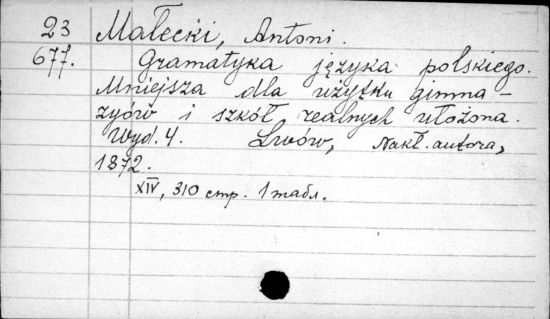 23 Małecki, Antoni.
677. Gramatyka języka polskiego.
Mniejsza dla użytku gimna-
zyów i szkół realnych ułożona.
Wyd. 4. Lwów, Nakł. autora,
1872.
XIV, 310 стр. 1 табл.